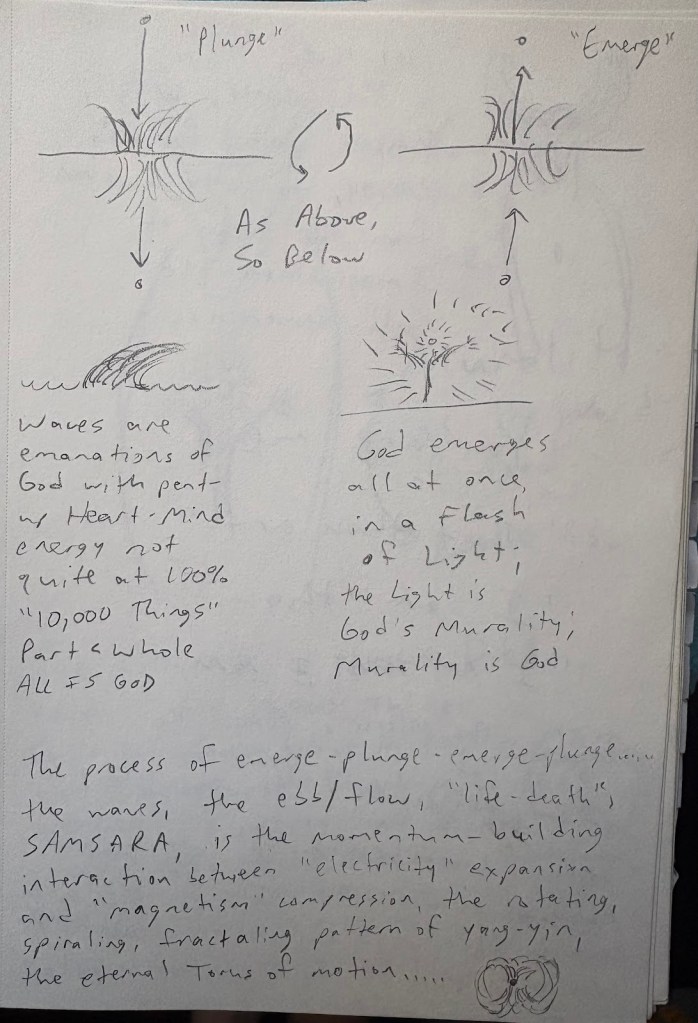 "Plunge"
"Emerge"
As Above,
So Below
Waves are
emanations of
God with pent-
up Heart-Mind
energy not
quite at 100%
"10,000 Things"
Part & Whole
ALL IS GOD
God emerges
all at once,
in a Flash
of Light;
the Light is
God's Murality;
Murality is God
The process of emerge-plunge-emerge-plunge.....
the waves, the ebb/flow, "life-death",
SAMSARA, is the momentum-building
interaction between "electricity" expansion
and "magnetism" compression, the rotating,
spiraling, fractaling pattern of yang-yin,
the eternal Torus of motion.....